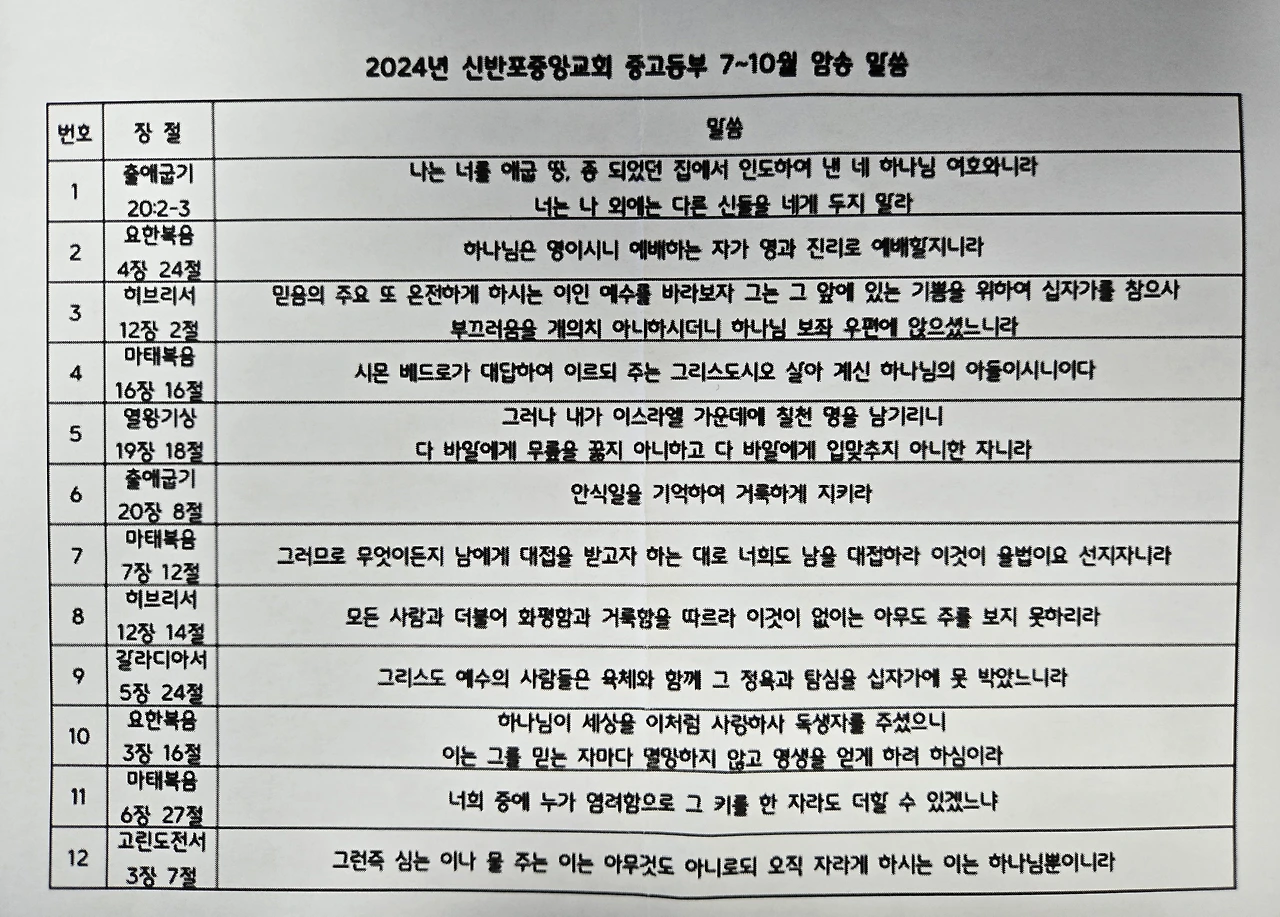 2024년 신반포중앙교회 중고등부 7~10월 암송 말씀
번호 장 절 말씀
1 출애굽기 20:2-3
나는 너를 애굽 땅, 종 되었던 집에서 인도하여 낸 네 하나님 여호와니라
너는 나 외에는 다른 신들을 네게 두지 말라
2 요한복음 4장 24절
하나님은 영이시니 예배하는 자가 영과 진리로 예배할지니라
3 히브리서 12장 2절
믿음의 주요 또 온전하게 하시는 이인 예수를 바라보자 그는 그 앞에 있는 기쁨을 위하여 십자가를 참으사
부끄러움을 개의치 아니하시더니 하나님 보좌 우편에 앉으셨느니라
4 마태복음 16장 16절
시몬 베드로가 대답하여 이르되 주는 그리스도시오 살아 계신 하나님의 아들이시니이다
5 열왕기상 19장 18절
그러나 내가 이스라엘 가운데에 칠천 명을 남기리니
다 바알에게 무릎을 꿇지 아니하고 다 바알에게 입맞추지 아니한 자니라
6 출애굽기 20장 8절
안식일을 기억하여 거룩하게 지키라
7 마태복음 7장 12절
그러므로 무엇이든지 남에게 대접을 받고자 하는 대로 너희도 남을 대접하라 이것이 율법이요 선지자니라
8 히브리서 12장 14절
모든 사람과 더불어 화평함과 거룩함을 따르라 이것이 없이는 아무도 주를 보지 못하리라
9 갈라디아서 5장 24절
그리스도 예수의 사람들은 육체와 함께 그 정욕과 탐심을 십자가에 못 박았느니라
10 요한복음 3장 16절
하나님이 세상을 이처럼 사랑하사 독생자를 주셨으니
이는 그를 믿는 자마다 멸망하지 않고 영생을 얻게 하려 하심이라
11 마태복음 6장 27절
너희 중에 누가 염려함으로 그 키를 한 자라도 더할 수 있겠느냐
12 고린도전서 3장 7절
그런즉 심는 이나 물 주는 이는 아무것도 아니로되 오직 자라게 하시는 이는 하나님뿐이니라